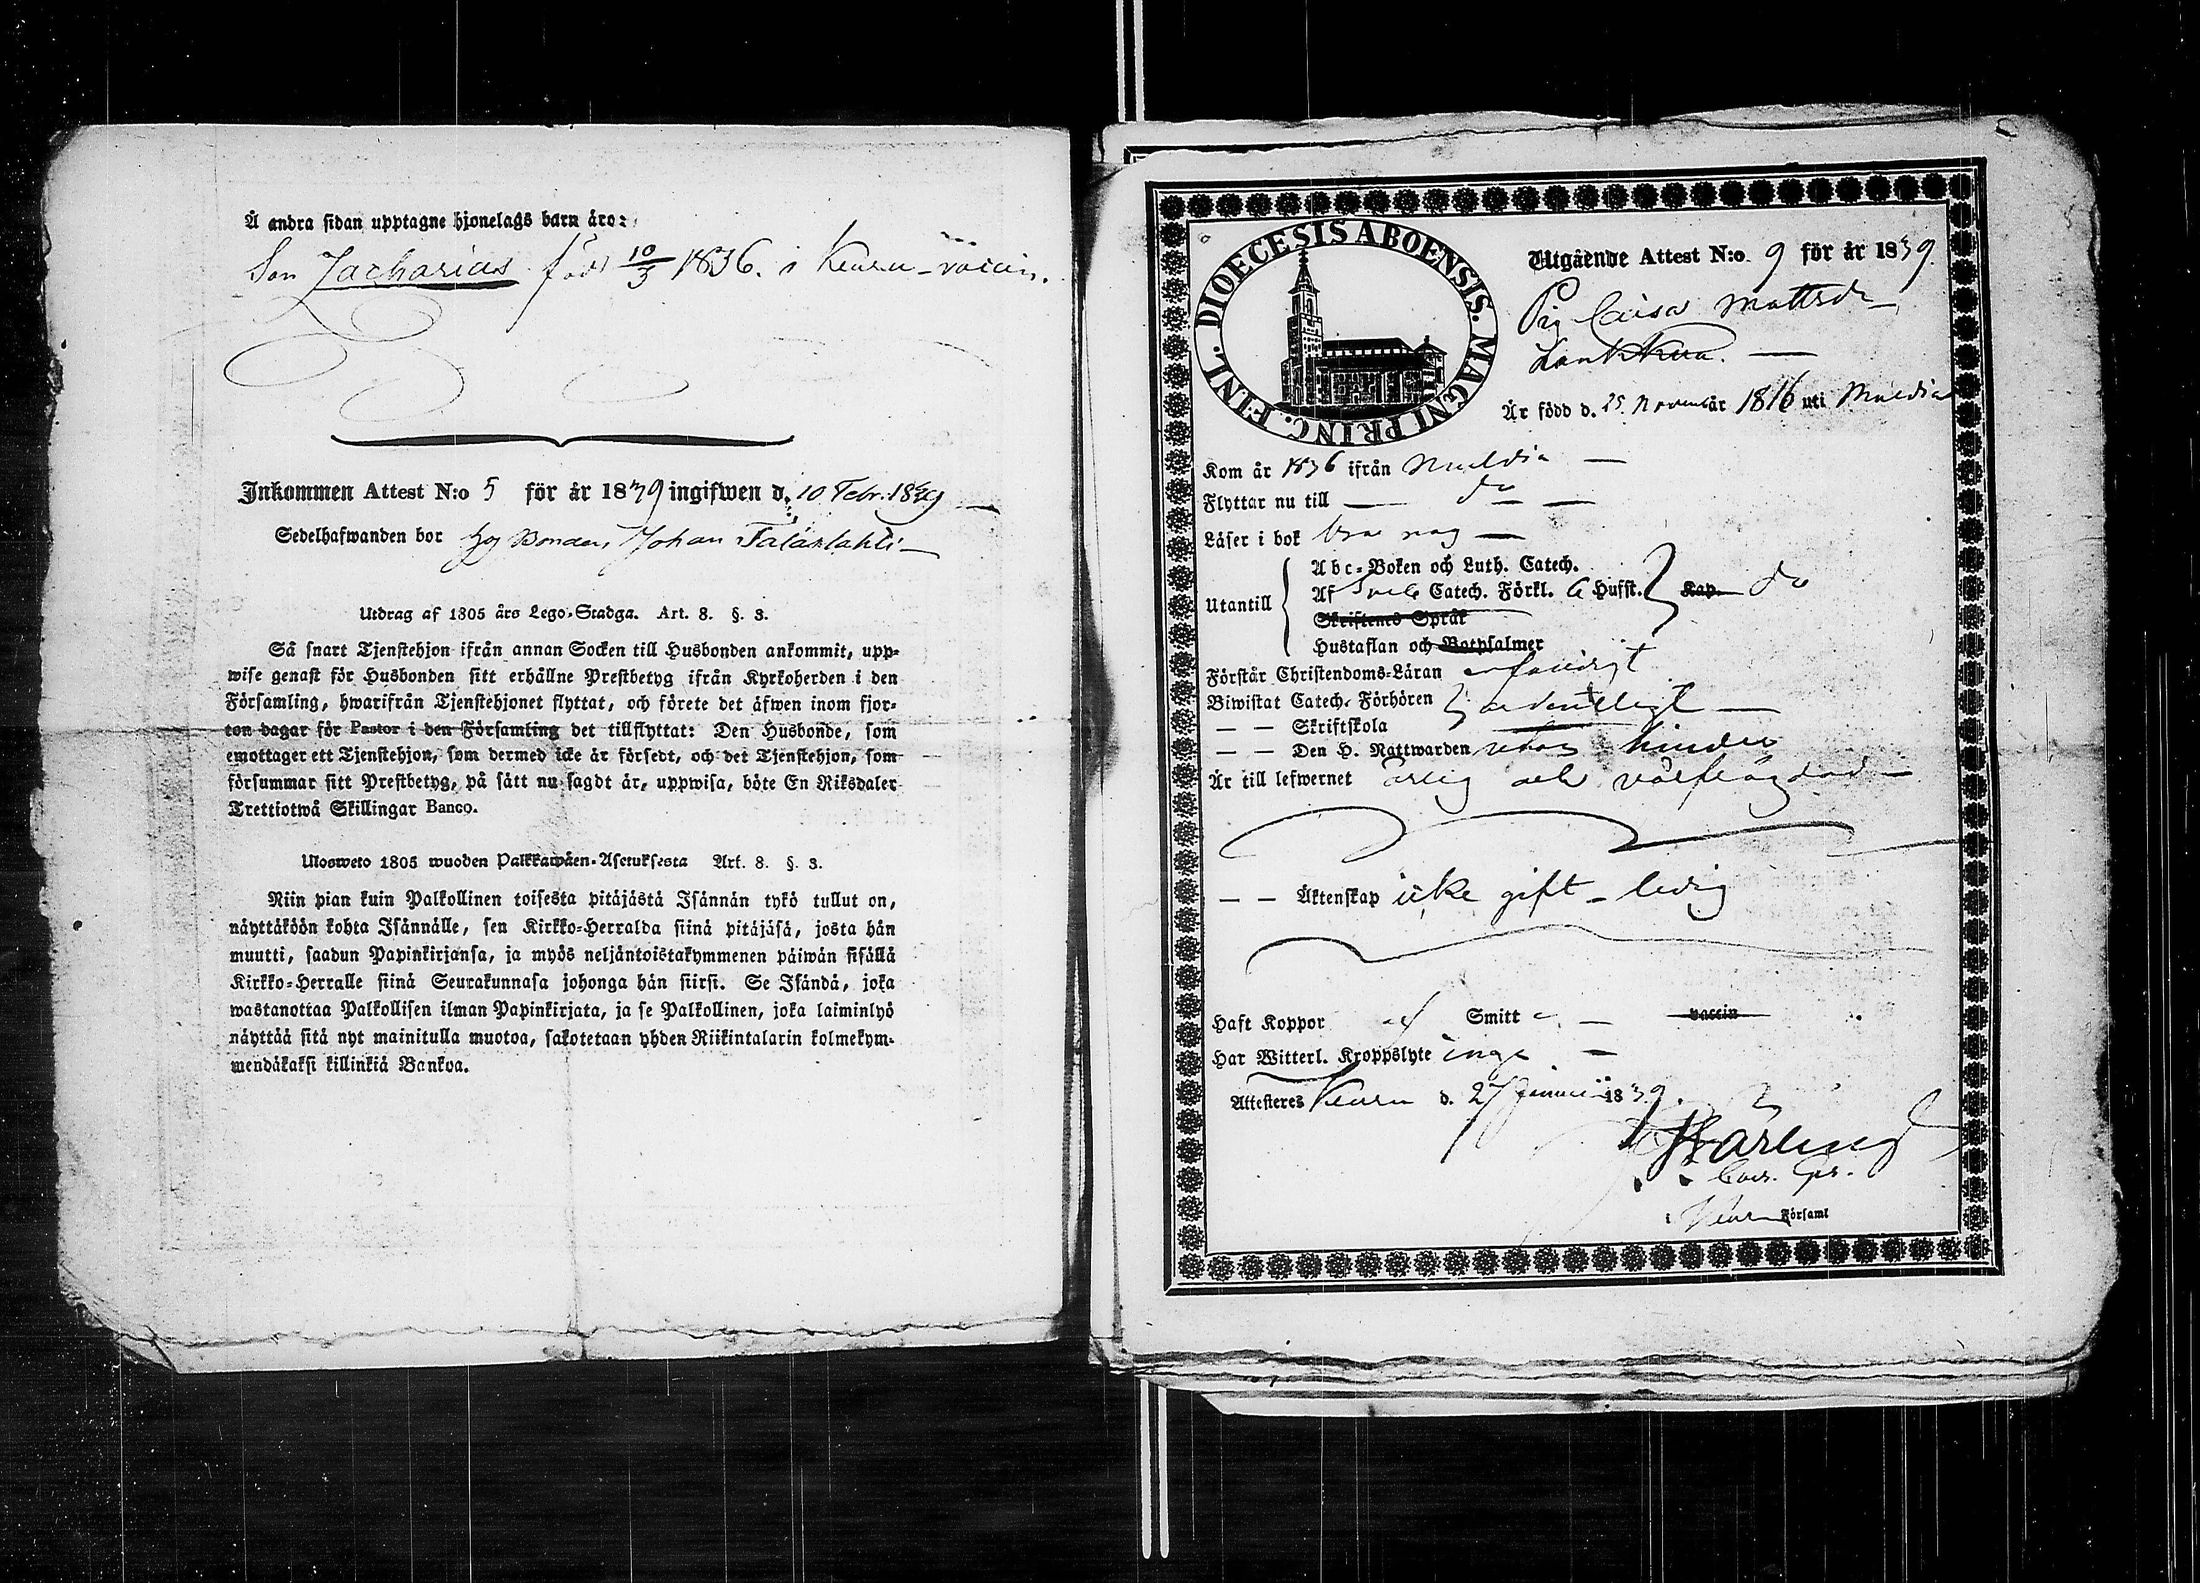 Å andra sidan upptagne hjonelags barn äro:
Son Zacharias född 10/3 1836. i Keuru - vaccin.
Inkommen Attest N:o 5 för år 1839 ingifwen d. 10 Febr. 1839
Sedelhafwanden bor hos Bonden Johan
Utdrag af 1805 års Lego-Stadga. Art. 8. §. 3.
Så snart Tjenstehjon ifrån annan Socken till Husbonden ankommit, upp-
wise genast för Husbonden sitt erhållne Prestbetyg ifrån Kyrkoherden i den
Församling, hwarifrån Tjenstehjonet flyttat, och förete det äfwen inom fjor-
ton dagar för Pastor i den Församling det tillflyttat: Den Husbonde, som
emottager ett Tjenstehjon, som dermed icke är försedt, och det Tjenstehjon, som
försummar sitt Prestbetyg, på sätt nu sagdt är, uppwisa, böte En Riksdaler
Trettiotwå Skillingar Banco.
Ulosweto 1805 wuoden Palkkawäen-Asetuksesta Art. 8. §. 3.
Niin pian kuin Palkollinen toisesta pitäjästä Isännän tykö tullut on,
näyttäköön kohta Isännälle, sen Kirkko-Herralda siinä pitäjäsä, josta hän
muutti, saadun Papinkirjansa, ja myös neljäntoistakymmenen päiwän sisällä
Kirkko-Herralle siinä Seurakunnasa johonga hän siirsi. Se Isändä, joka
wastanottaa Palkollisen ilman Papinkirjata, ja se Palkollinen, joka laiminlyö
näyttää sitä nyt mainitulla muotoa, sakotetaan yhden Riikintalarin kolmekym-
mendäkaksi killinkiä Bankoa.
DIOECESIS ABOENSIS. MAGNI PRINC. FINL.
Utgående Attest N:o 9 för år 1839.
Pig Caisa Mattsdr
Är född d. 25 November år 1816 uti Muldia
Kom år 1836 ifrån Muldia
Flyttar nu till do
Läser i bok bra nog
Utantill
Abc-Boken och Luth. Catech.
Af Sveb Catech. Förkl. 6 Hufst. Kap. do
Skriftenes Språk
Hustaflan och Botpsalmer
Förstår Christendoms-Läran
Biwistat Catech. Förhören ordentligt
— — Skriftskola
— — Den H. Nattwarden utan hinder
Är till lefwernet ärlig och välfrägdad
— — Äktenskap icke gift - ledig
Haft Koppor ej Smitt vaccin
Har Witterl. Kroppslyte inga
Attesteres Keuru d. 27 Januarii 1839.
i Keuru Församl